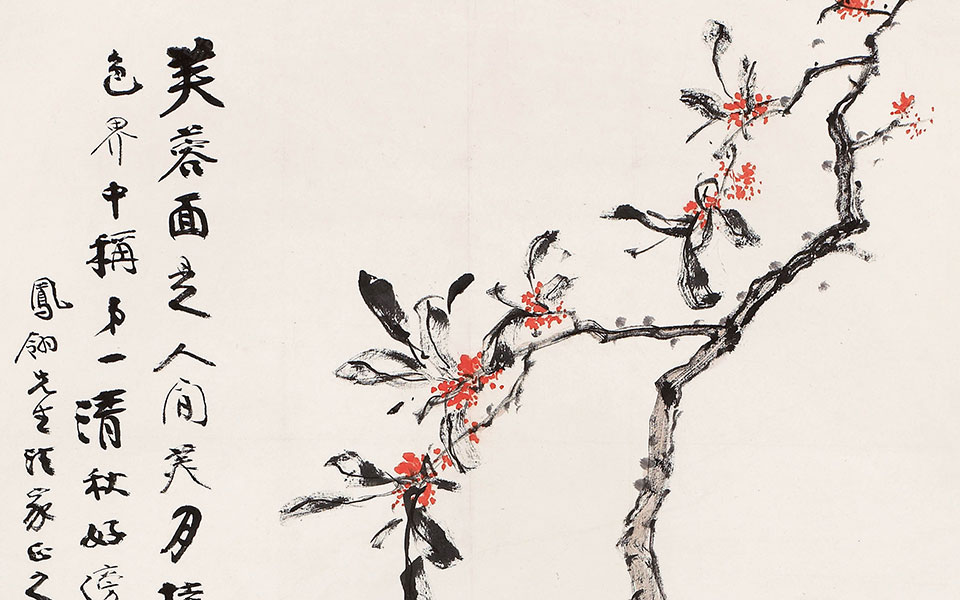 芙蓉面是人間美月
色界中稱弟一清秋好
鳳翎先生法家正之